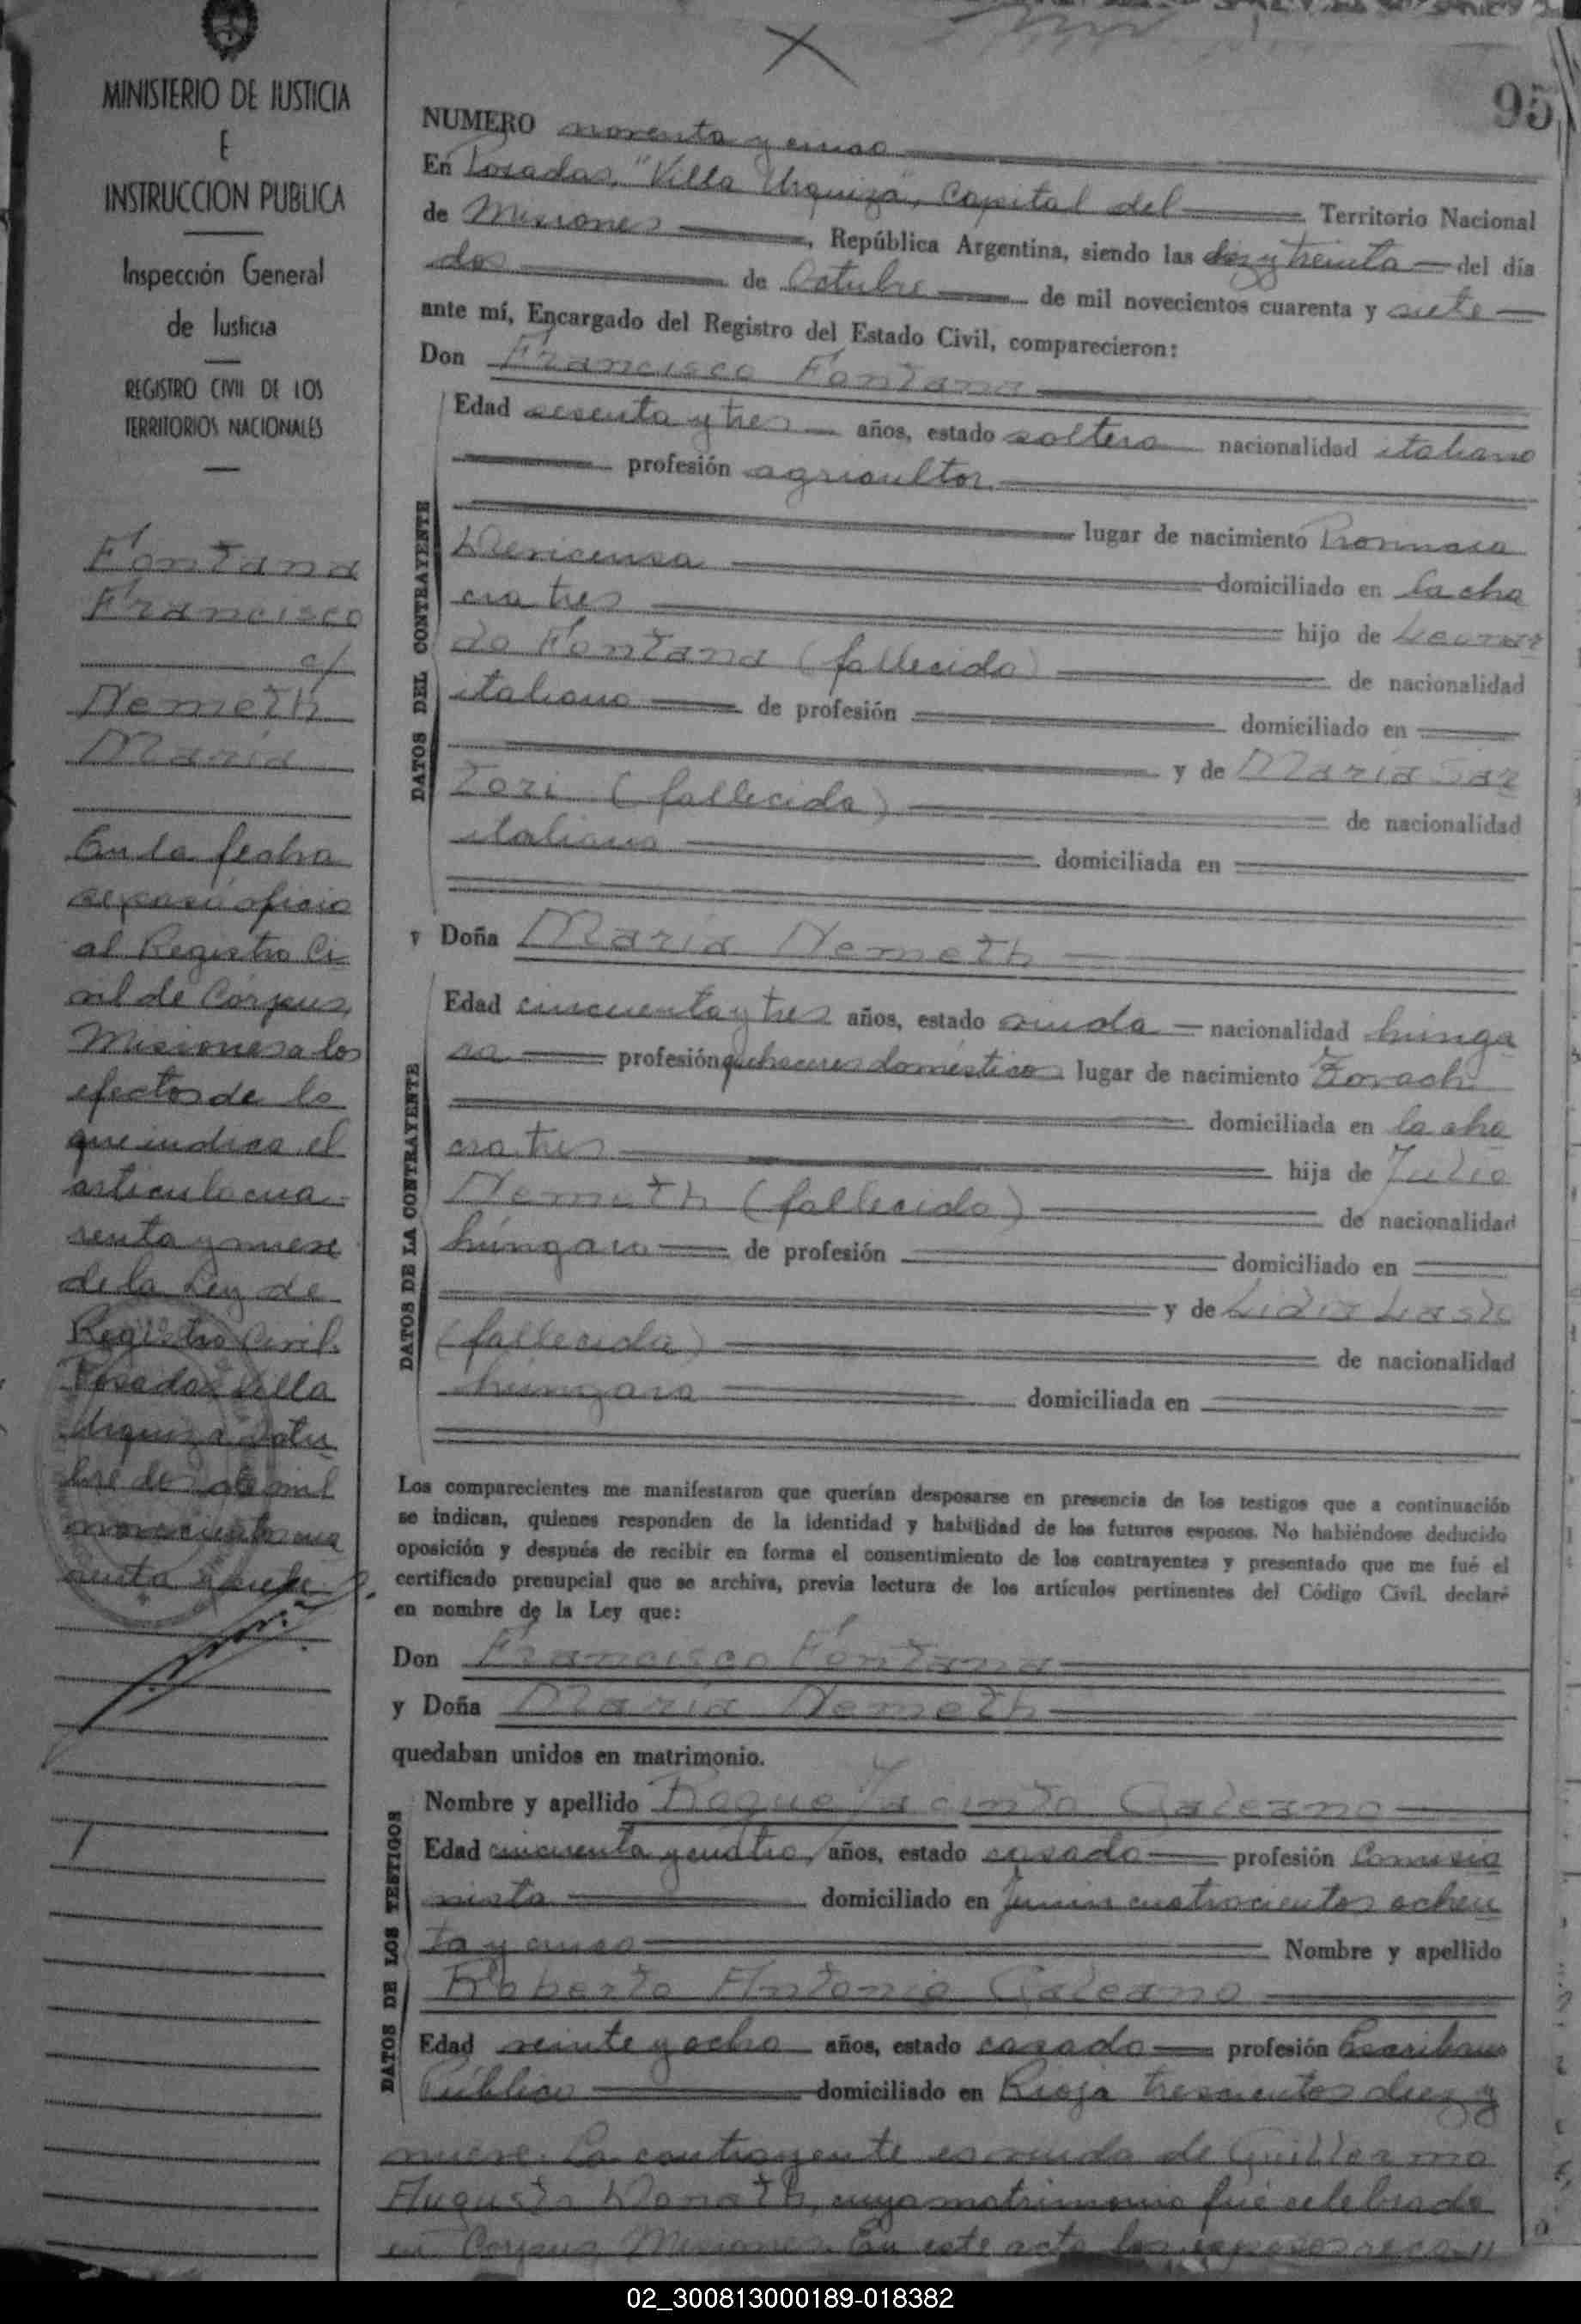 MINISTERIO DE JUSTICIA
E
INSTRUCCION PUBLICA
Inspección General
de Justicia
REGISTRO CIVIL DE LOS
TERRITORIOS NACIONALES
Fontana
Francisco
c/
Nemeth
María
En la fecha
se pasó oficio
al Registro Ci
vil de Corpus,
Misiones a los
efectos de lo
que indica el
artículo cua-
renta y nueve
de la Ley de
Registro Civil.
Posadas Villa
Urquiza Octu
bre dos de mil
novecientos cua
renta y siete.
95
NUMERO noventa y cinco
En Posadas, "Villa Urquiza", Capital del Territorio Nacional
de Misiones, República Argentina, siendo las diez y treinta del día
dos de Octubre de mil novecientos cuarenta y siete
ante mí, Encargado del Registro del Estado Civil, comparecieron:
Don Francisco Fontana
DATOS DEL CONTRAYENTE
Edad sesenta y tres años, estado soltero nacionalidad italiano
profesión agricultor.
lugar de nacimiento
domiciliado en la cha
cra tres hijo de Leonar
do Fontana (fallecido) de nacionalidad
italiano de profesión domiciliado en
y de María Sar
tori (fallecida) de nacionalidad
italiana domiciliada en
y Doña María Nemeth
DATOS DE LA CONTRAYENTE
Edad cincuenta y tres años, estado viuda nacionalidad húnga
ra profesión quehaceres domésticos lugar de nacimiento
domiciliada en la cha
cra tres hija de Julio
Nemeth (fallecido) de nacionalidad
húngaro de profesión domiciliado en
y de Lidia
(fallecida) de nacionalidad
húngara domiciliada en
Los comparecientes me manifestaron que querían desposarse en presencia de los testigos que a continuación
se indican, quienes responden de la identidad y habilidad de los futuros esposos. No habiéndose deducido
oposición y después de recibir en forma el consentimiento de los contrayentes y presentado que me fué el
certificado prenupcial que se archiva, previa lectura de los artículos pertinentes del Código Civil, declaré
en nombre de la Ley que:
Don Francisco Fontana
y Doña María Nemeth
quedaban unidos en matrimonio.
DATOS DE LOS TESTIGOS
Nombre y apellido Roque Jacinto Galeano
Edad cincuenta y cuatro, años, estado casado profesión Comisio
nista domiciliado en Junín cuatrocientos ochen
ta y cinco Nombre y apellido
Roberto Antonio Galeano
Edad veinte y ocho años, estado casado profesión Escribano
Público domiciliado en Rioja trescientos diez y
nueve. La contrayente es viuda de Guillermo
Augusto Donath, cuyo matrimonio fué celebrado
en Corpus, Misiones. En este acto los esposos
02_300813000189-018382